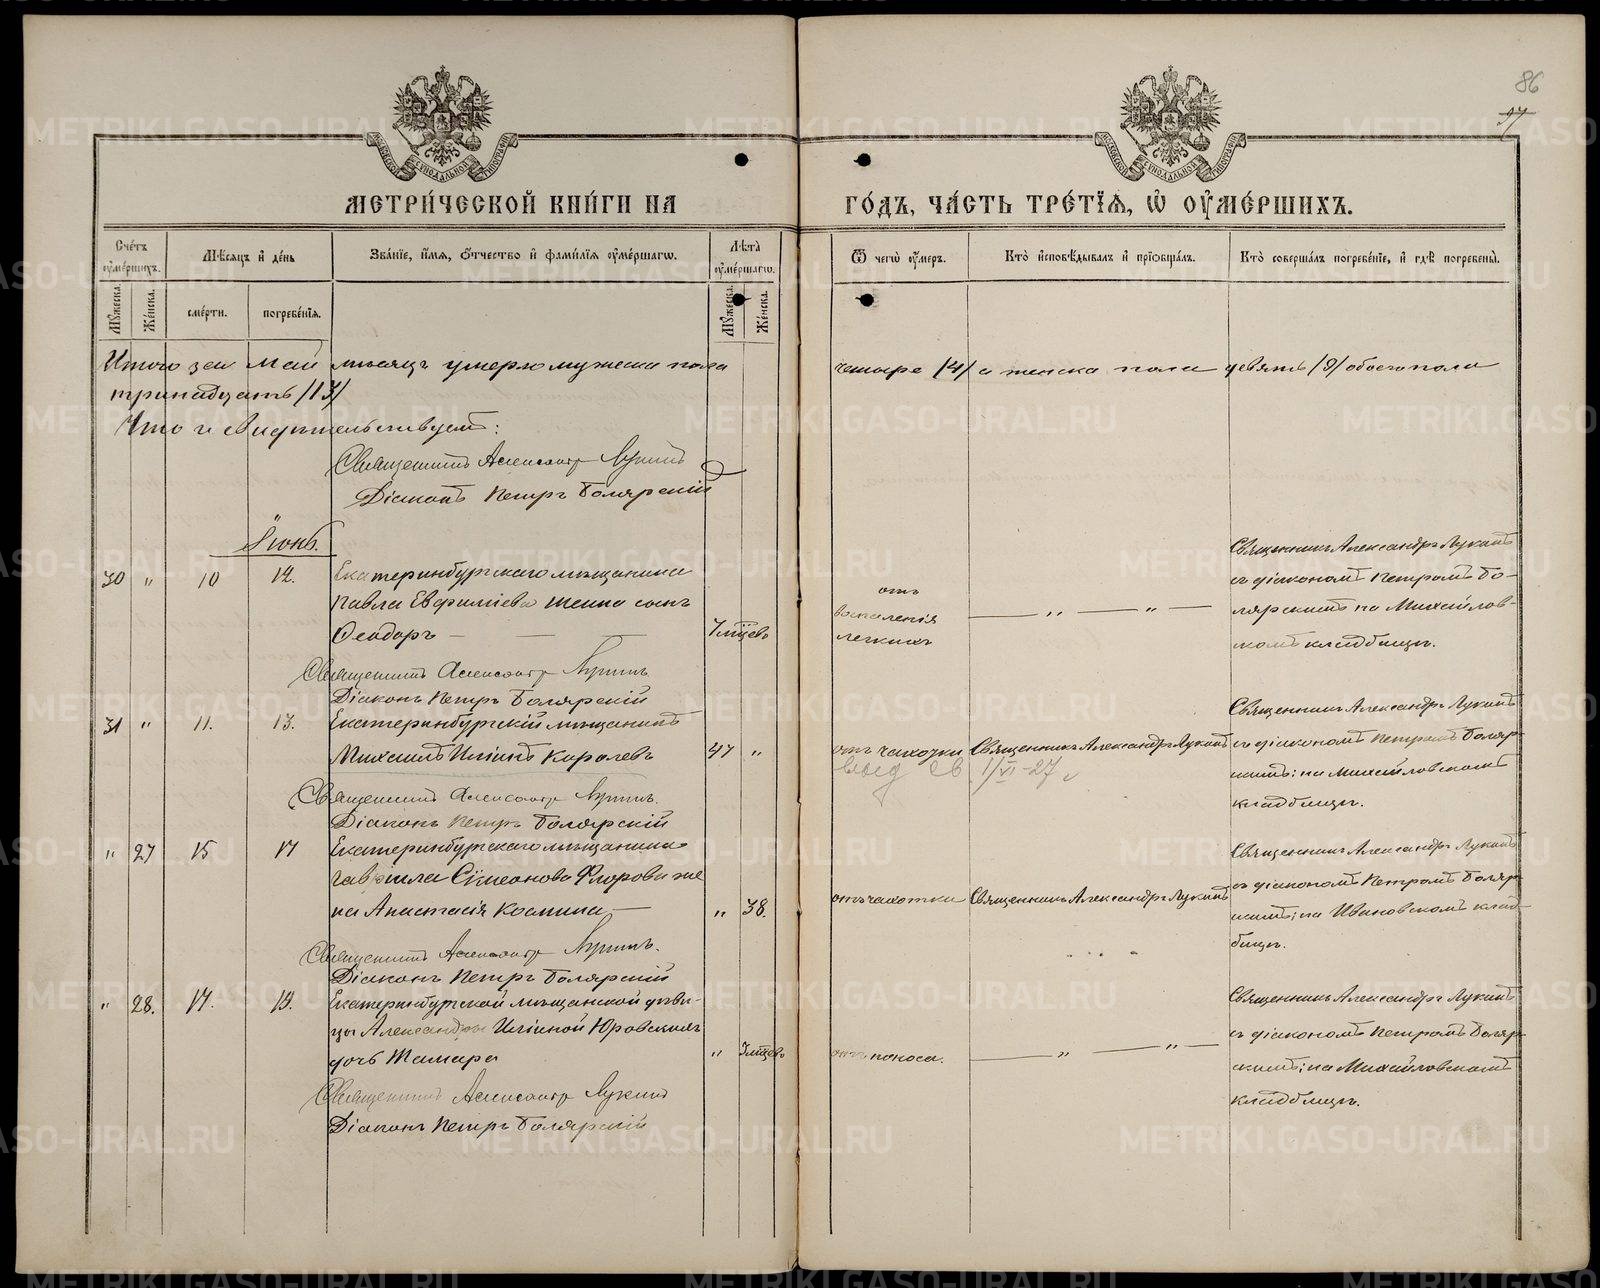 86
МЕТРИ́ЧЕСКОЙ КНИ́ГИ НА ГО́ДЪ, ЧА́СТЬ ТРЕ́ТІѦ, Ѡ ОУ҆МЕ́РШИХЪ.
Сче́тъ оу҆ме́ршихъ.
Мѣ́сяцъ и҆ де́нь
Зва́нїе, и҆́мѧ, ѻ҆́тчество и҆ фами́лїѧ оу҆ме́ршагѡ.
Лѣ́та оу҆ме́ршагѡ.
Ѿ чегѡ̀ оу҆́меръ.
Кто̀ и҆сповѣ́дывалъ и҆ прїѡбща́лъ.
Кто̀ соверша́лъ погребе́нїе, и҆ гдѣ̀ погребены̀.
Мꙋ́жеска.
Же́нска.
сме́рти.
погребе́нїѧ.
Мꙋ́жеска.
Же́нска.
Итого за Май мѣсяцъ умерло мужеска пола четыре /4/ а женска пола девять /9/ обоего пола
тринадцать /13/
Что и свидѣтельствуемъ:
Священникъ Александръ Лукинъ
Діаконъ Петръ Болярскій
Іюнь.
30 " 10 12. Екатеринбургскаго мѣщанина
Павла Евфиміева сынъ
Ѳеодоръ —
отъ
воспаленія
легкихъ
— " — " —
Священникъ Александръ Лукинъ
съ діакономъ Петромъ Бо-
лярскимъ на Михайлов-
скомъ кладбищѣ.
Священникъ Александръ Лукинъ
Діаконъ Петръ Болярскій
31 " 11. 13. Екатеринбургскій мѣщанинъ
Михаилъ Ильинъ Королевъ 47 "
отъ чахотки
Священникъ Александръ Лукинъ
1/VI-27
Священникъ Александръ Лукинъ
съ діакономъ Петромъ Боляр-
скимъ; на Михайловскомъ
кладбищѣ.
Священникъ Александръ Лукинъ.
Діаконъ Петръ Болярскій
" 27 15 17 Екатеринбургскаго мѣщанина
Гавріила Сѵмеонова Флорова же-
на Анастасія Космина — " 38.
отъ чахотки
Священникъ Александръ Лукинъ
Священникъ Александръ Лукинъ
съ діакономъ Петромъ Боляр-
скимъ; на Ивановскомъ клад-
бищѣ.
Священникъ Александръ Лукинъ.
Діаконъ Петръ Болярскій
" 28. 17. 19. Екатеринбургской мѣщанской дѣви-
цы Александры Ильиной Юровскихъ
дочь Тамара "
отъ поноса.
— " — " —
Священникъ Александръ Лукинъ
съ діакономъ Петромъ Боляр-
скимъ; на Михайловскомъ
кладбищѣ.
Священникъ Александръ Лукинъ
Діаконъ Петръ Болярскій
METRIKI.GASO-URAL.RU